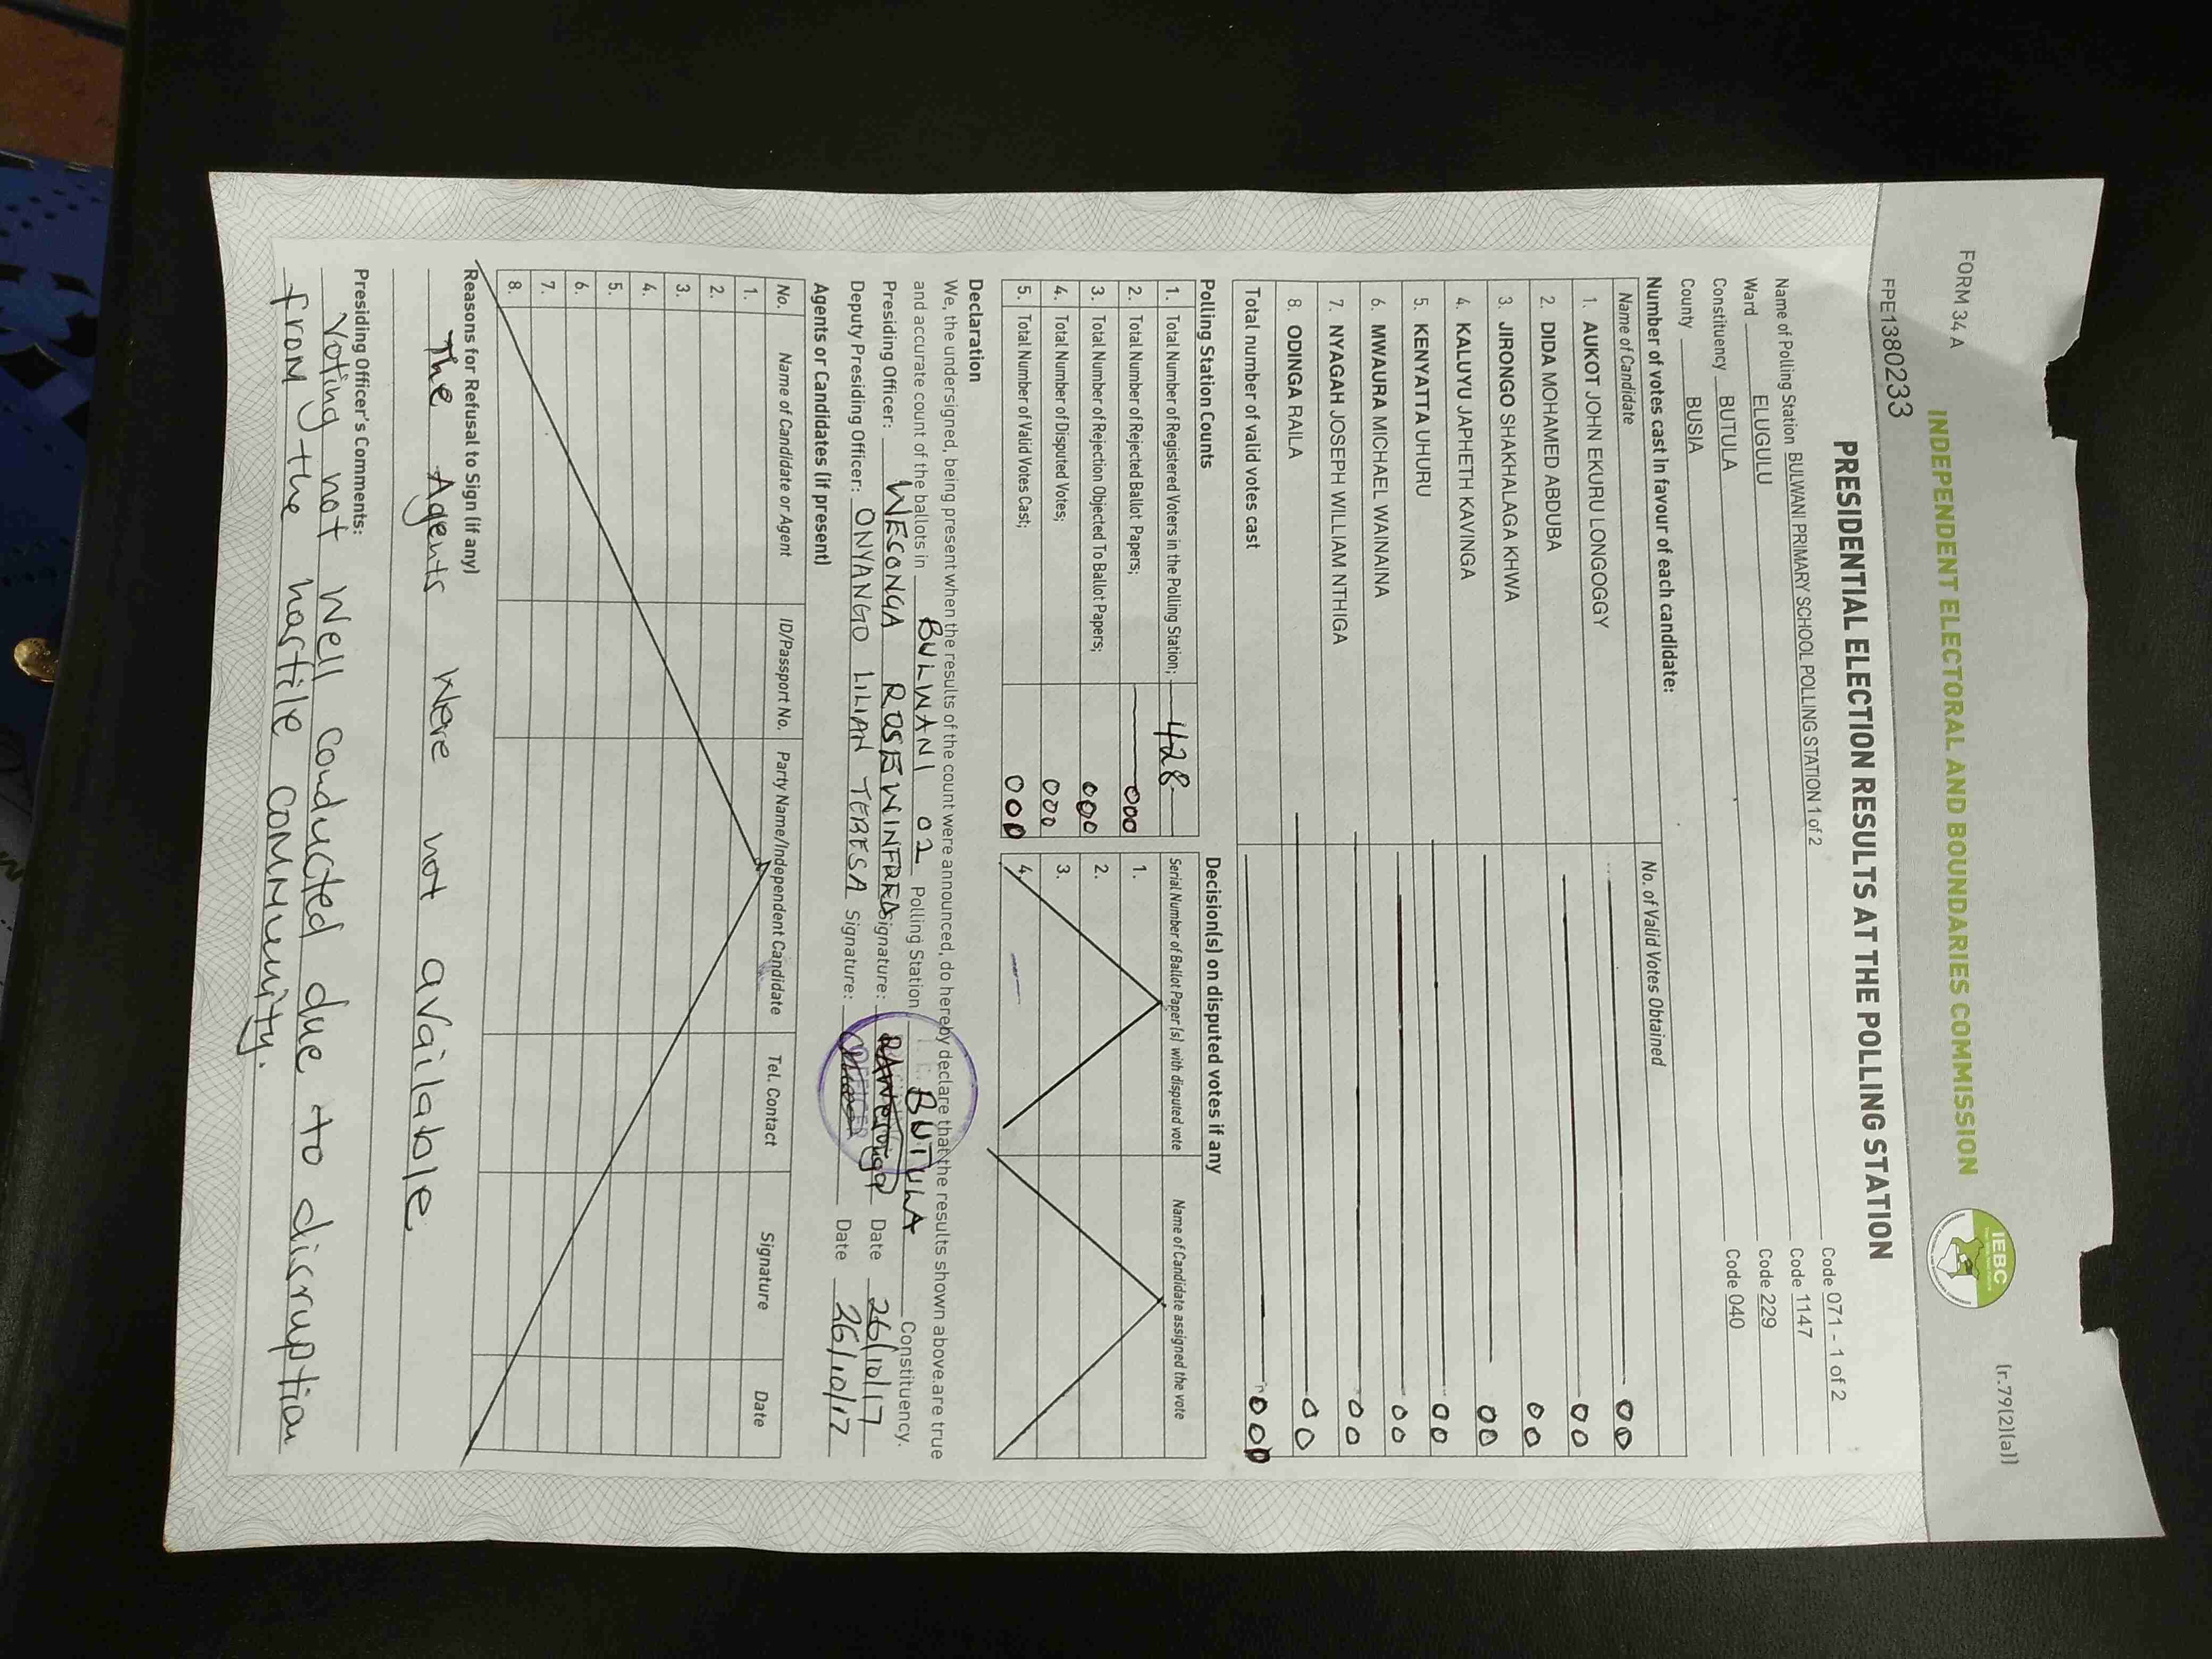 FORM 34 A
(r.79(2)(a))
INDEPENDENT ELECTORAL AND BOUNDARIES COMMISSION
IEBC
FPE1380233
PRESIDENTIAL ELECTION RESULTS AT THE POLLING STATION
Name of Polling Station BULWANI PRIMARY SCHOOL POLLING STATION 1 of 2 Code 071 - 1 of 2
Ward ELUGULU Code 1147
Constituency BUTULA Code 229
County BUSIA Code 040
Number of votes cast in favour of each candidate:
Name of Candidate No. of Valid Votes Obtained
1. AUKOT JOHN EKURU LONGOGGY 00
2. DIDA MOHAMED ABDUBA 00
3. JIRONGO SHAKHALAGA KHWA 00
4. KALUYU JAPHETH KAVINGA 00
5. KENYATTA UHURU 00
6. MWAURA MICHAEL WAINAINA 00
7. NYAGAH JOSEPH WILLIAM NTHIGA 00
8. ODINGA RAILA 00
Total number of valid votes cast 000
Polling Station Counts
1. Total Number of Registered Voters in the Polling Station; 428
2. Total Number of Rejected Ballot Papers; 000
3. Total Number of Rejection Objected To Ballot Papers; 000
4. Total Number of Disputed Votes; 000
5. Total Number of Valid Votes Cast; 000
Decision(s) on disputed votes if any
Serial Number of Ballot Paper(s) with disputed vote Name of Candidate assigned the vote
1.
2.
3.
4.
Declaration
We, the undersigned, being present when the results of the count were announced, do hereby declare that the results shown above are true
and accurate count of the ballots in BULWANI 02 Polling Station BUTULA Constituency.
Presiding Officer: WECONGA ROSE WINFRED Signature: Date 26/10/17
Deputy Presiding Officer: ONYANGO LILIAN TERESA Signature: Date 26/10/17
Agents or Candidates (if present)
No. Name of Candidate or Agent ID/Passport No. Party Name/Independent Candidate Tel. Contact Signature Date
1.
2.
3.
4.
5.
6.
7.
8.
Reasons for Refusal to Sign (if any)
The Agents were not available.
Presiding Officer's Comments:
Voting not well conducted due to disruption
from the hostile community.